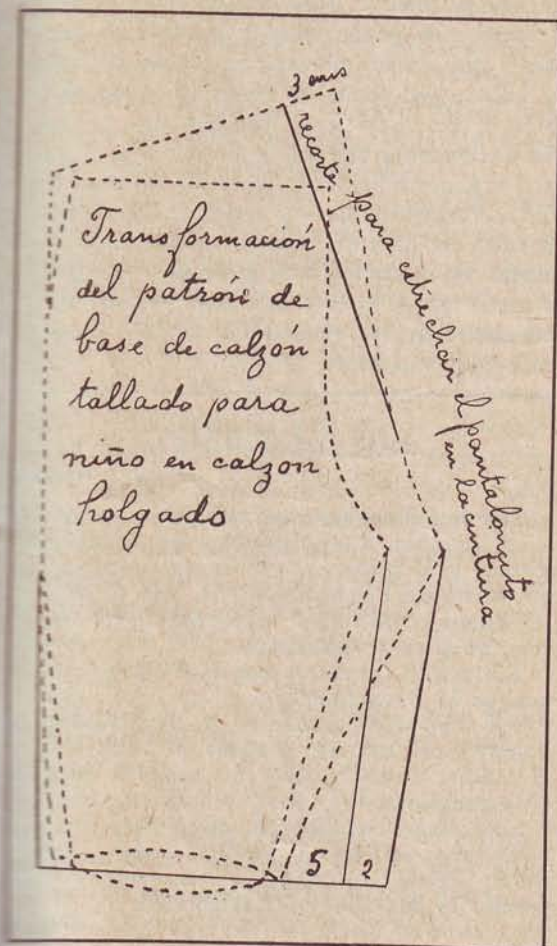 3 cms
recorte para estrechar el pantaloncito
en la cintura
Transformación
del patrón de
base de calzón
tallado para
niño en calzon
holgado
5 2